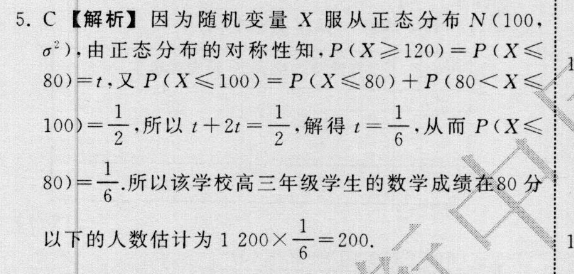 5. C 【解析】因为随机变量 X 服从正态分布 N(100,
σ²),由正态分布的对称性知,P(X⩾120)=P(X⩽
80)=t,又 P(X⩽100)=P(X⩽80)+P(80<X⩽
100)=1/2,所以 t+2t=1/2,解得 t=1/6,从而 P(X⩽
80)=1/6.所以该学校高三年级学生的数学成绩在80 分
以下的人数估计为 1 200×1/6=200.